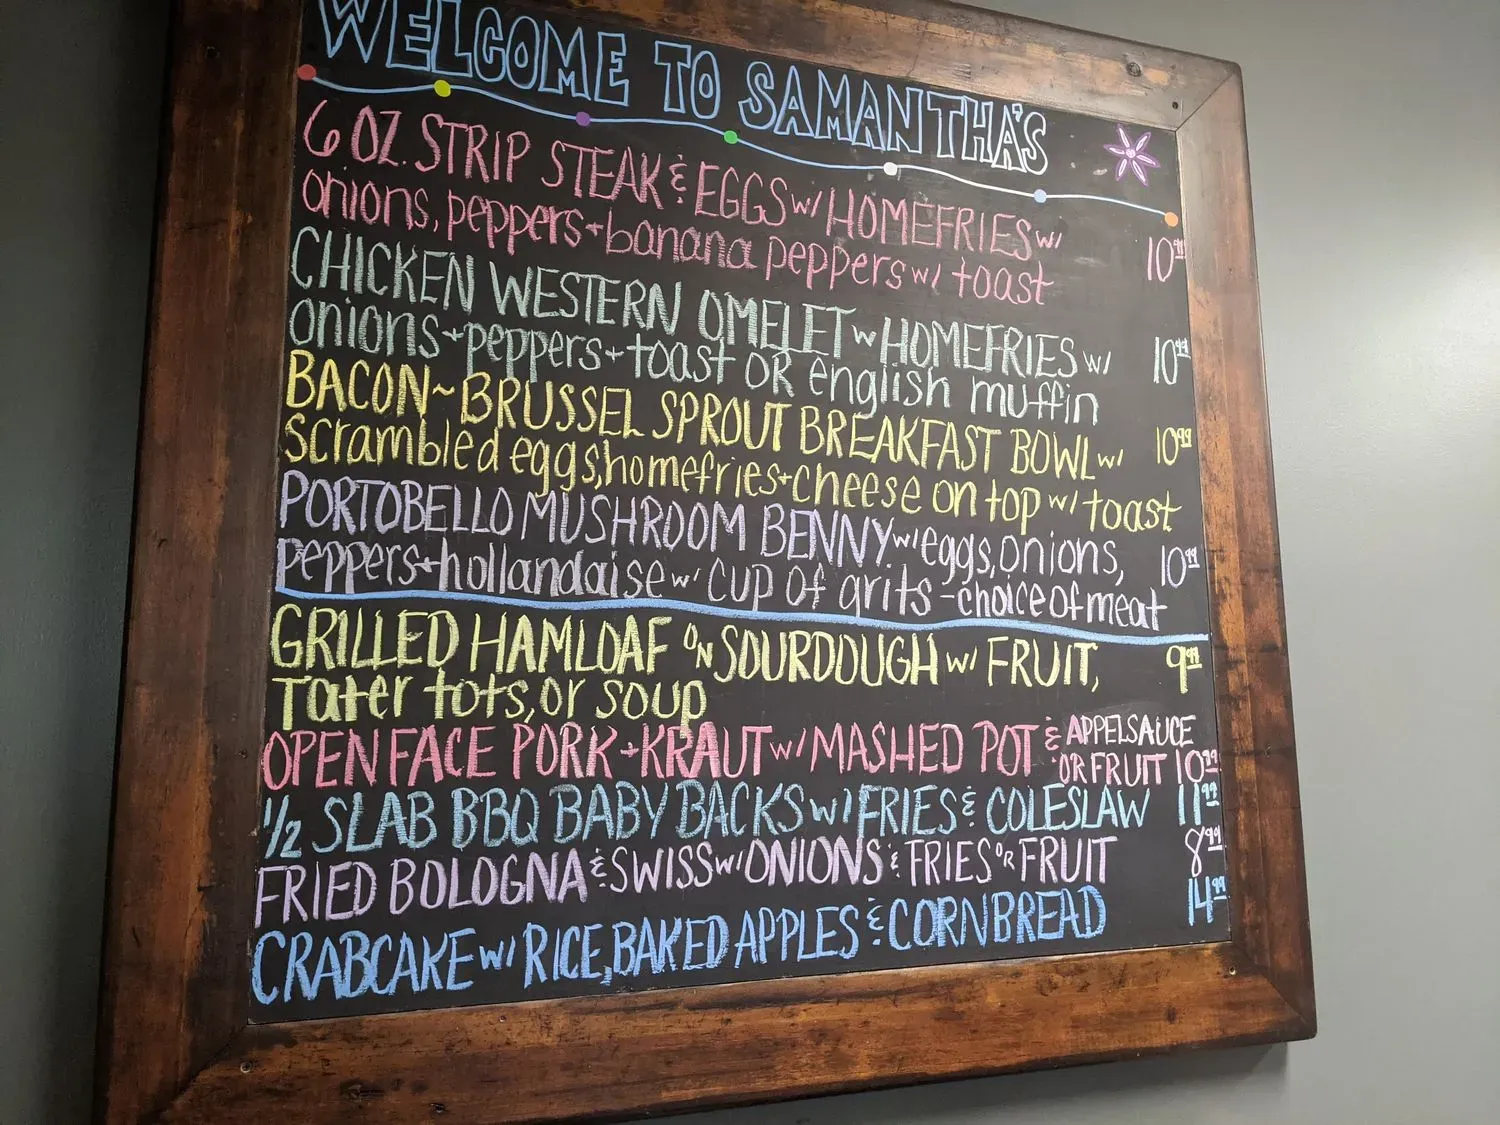 WELCOME TO SAMANTHA'S
6 OZ. STRIP STEAK & EGGS w/ HOMEFRIES w/
onions, peppers + banana peppers w/ toast 10.99
CHICKEN WESTERN OMELET w HOMEFRIES w/
onions + peppers + toast OR english muffin 10.99
BACON ~ BRUSSEL SPROUT BREAKFAST BOWL w/ 10.99
scrambled eggs, homefries + cheese on top w/ toast
PORTOBELLO MUSHROOM BENNY w/ eggs, onions,
peppers + hollandaise w/ cup of grits - choice of meat 10.99
GRILLED HAMLOAF ON SOURDOUGH w/ FRUIT, 9.99
Tater tots, or soup
OPEN FACE PORK + KRAUT w/ MASHED POT & APPELSAUCE
OR FRUIT 10.99
1/2 SLAB BBQ BABY BACKS w/ FRIES & COLESLAW 11.99
FRIED BOLOGNA & SWISS w/ ONIONS & FRIES OR FRUIT 8.99
CRABCAKE w/ RICE, BAKED APPLES & CORNBREAD 14.99